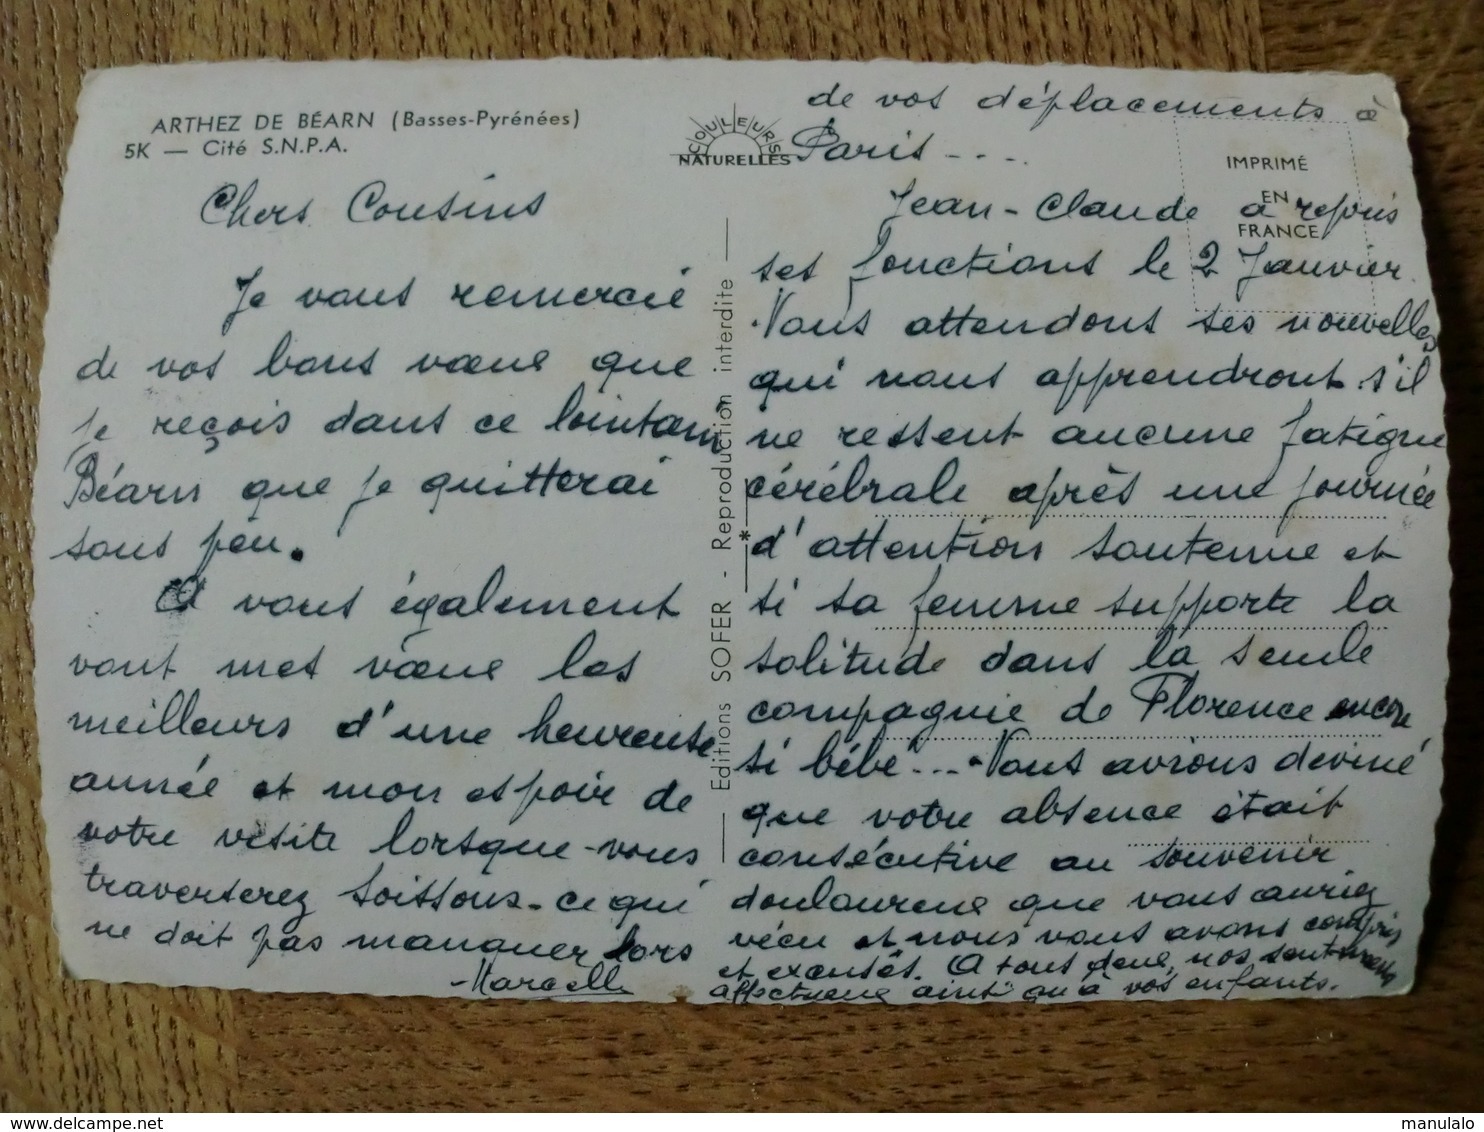 ARTHEZ DE BÉARN (Basses-Pyrénées)
5K — Cité S.N.P.A.
Chers Cousins
Je vous remercie
de vos bons vœux que
je reçois dans ce lointain
Béarn que je quitterai
sous peu.
A vous également
vont mes vœux les
meilleurs d'une heureuse
année et mon espoir de
votre visite lorsque vous
traverserez Soissons - ce qui
ne doit pas manquer lors
Marcelle
COULEURS
NATURELLES
Editions SOFER - Reproduction interdite
*
IMPRIMÉ
EN
FRANCE
de vos déplacements à
Paris - - . .
Jean-Claude a repris
ses fonctions le 2 Janvier.
Nous attendons ses nouvelles
qui nous apprendront s'il
ne ressent aucune fatigue
cérébrale après une journée
d'attention soutenue et
si sa femme supporte la
solitude dans la seule
compagnie de Florence encore
si bébé... Nous avions deviné
que votre absence était
consécutive au souvenir
douloureux que vous auriez
vécu et nous vous avons compris
et excusés. A tous deux, nos sentiments
affectueux ainsi qu'à vos enfants.
manulalo